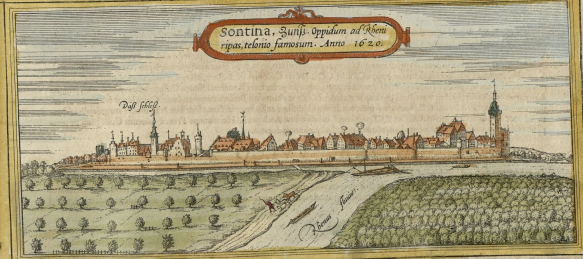 Sontina, Zunß. Oppidum ad Rheni
ripas, telonio famosum. Anno 1620.
Daß schloß.
Rhenus fluvius.